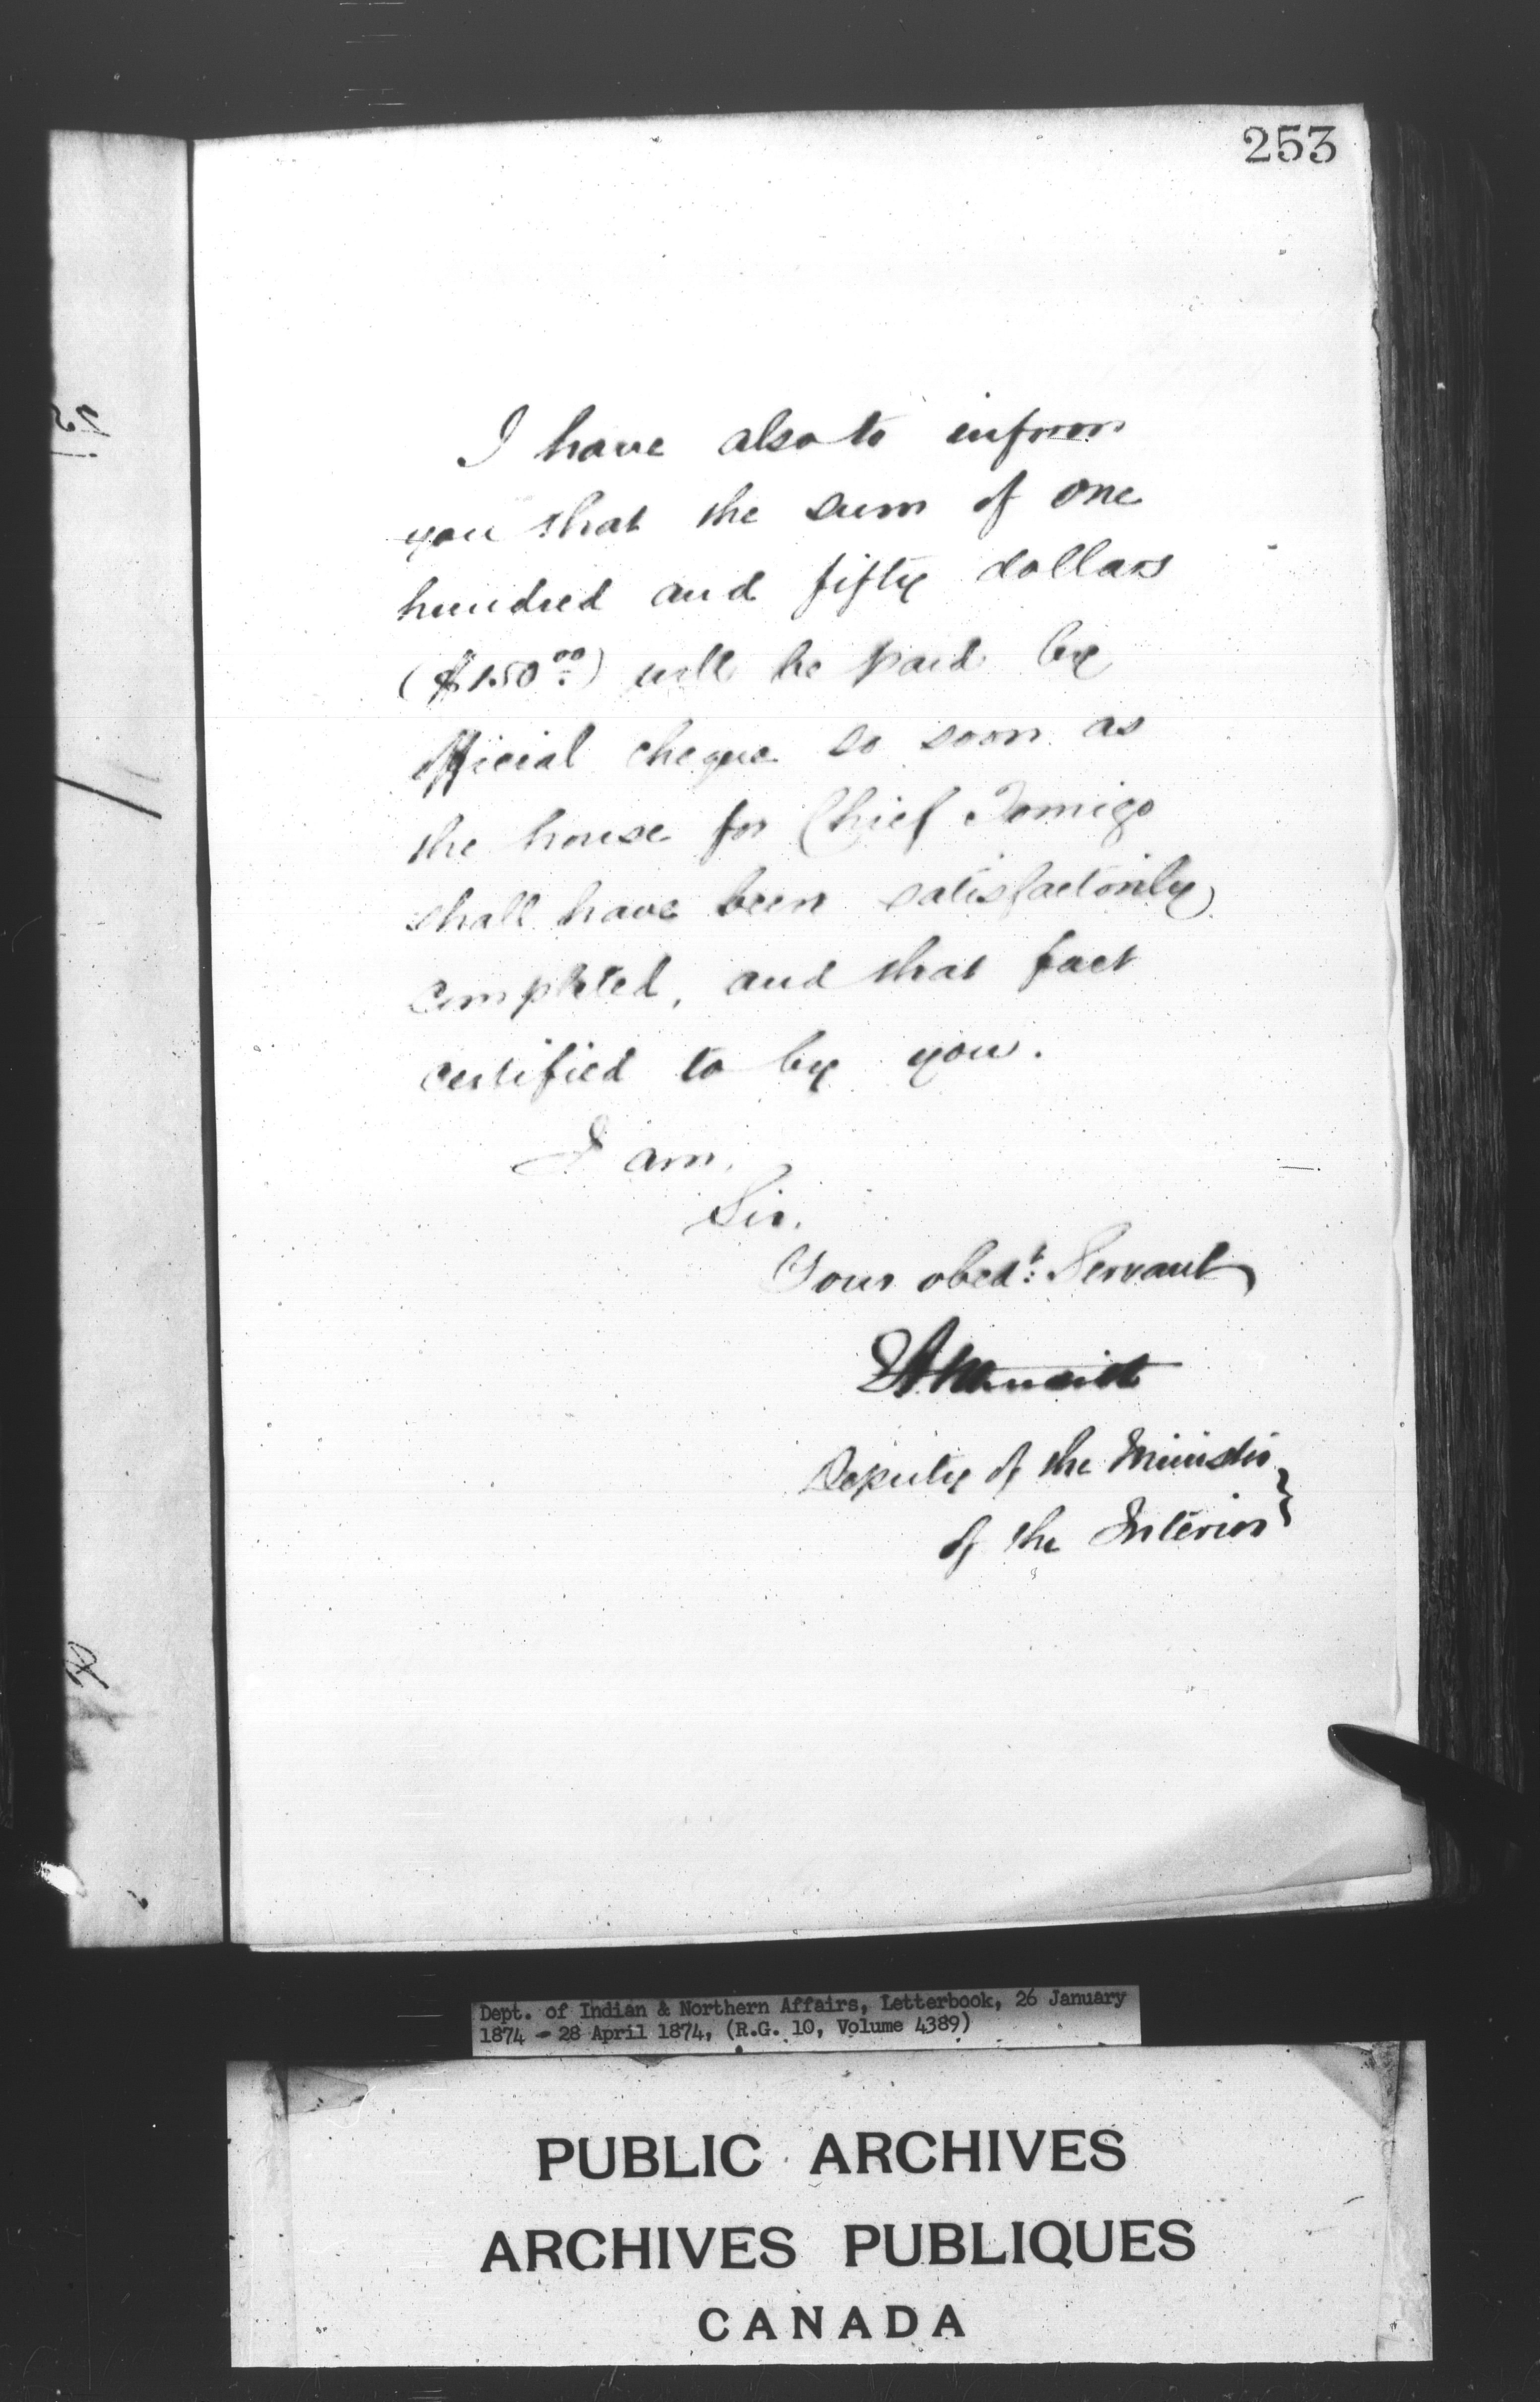 253
I have also to inform
you that the sum of one
hundred and fifty dollars
($150.00) will be paid by
official cheque so soon as
the house for Chief Tomigo
shall have been satisfactorily
completed, and that fact
certified to by you.
I am,
Sir,
Your obedt: Servant
Deputy of the Minister
of the Interior
Dept. of Indian & Northern Affairs, Letterbook, 26 January
1874 - 28 April 1874, (R.G. 10, Volume 4389)
PUBLIC ARCHIVES
ARCHIVES PUBLIQUES
CANADA